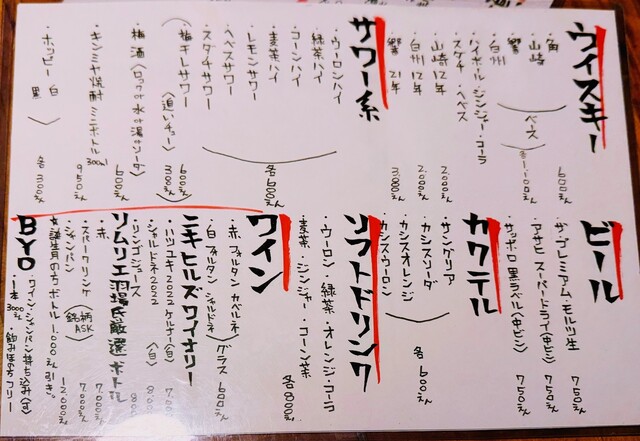 ウイスキー
・角 600えん
・山崎
・響
・白州
ベース 各1,100えん
・ハイボール・ジンジャー・コーラ
・スダチ・ヘベス
・山崎12年 2,000えん
・白州12年 2,000えん
・響21年 3,800えん
サワー系
・ウーロンハイ
・緑茶ハイ
・コーンハイ
・麦茶ハイ
・レモンサワー
・ヘベスサワー
・スダチサワー
各600えん
・梅干しサワー 600えん
〈追いチュー〉 300えん
・梅酒〈ロックor水or湯orソーダ〉 600えん
・キンミヤ焼酎ミニボトル 300ml 950えん
・ホッピー 白 黒 各300えん
ビール
・ザ・プレミアム・モルツ生 750えん
・アサヒスーパードライ〈中ビン〉 750えん
・サッポロ黒ラベル〈中ビン〉 750えん
カクテル
・サングリア
・カシスソーダ
・カシスオレンジ
・カシスウーロン
各600えん
ソフトドリンク
・ウーロン・緑茶・オレンジ・コーラ
・麦茶・ジンジャー・コーン茶
各300えん
ワイン
・赤 フォルタン カベルネ
・白 フォルタン シャルドネ
グラス600えん
ニキヒルズワイナリー
・ハツユキ2022ケルナー〈白〉
・シャルドネ2022〈白〉
・リンゴジュース
ソムリエ羽場氏厳選ボトル
・赤 7,000
・スパークリング 7,000えん
・シャンパン〈銘柄ASK〉 12,000えん
☆誕生月の方ボトル1,000えん引き。
BYO
・ワイン・シャンパン持ち込み〈可〉
1本3000えん 飲みほのちフリー